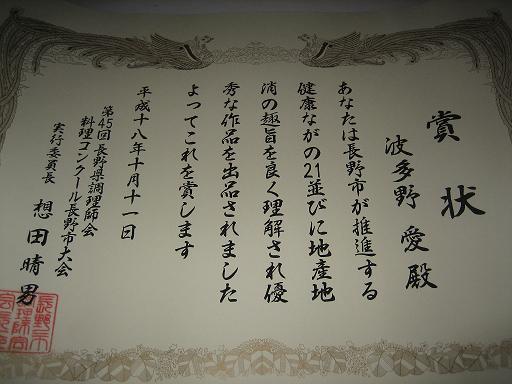 賞状
波多野 愛 殿
あなたは長野市が推進する
健康ながの21並びに地産地
消の趣旨を良く理解され優
秀な作品を出品されました
よってこれを賞します
平成十八年十月十一日
第45回長野県調理師会
料理コンクール長野市大会
実行委員長 想田晴男